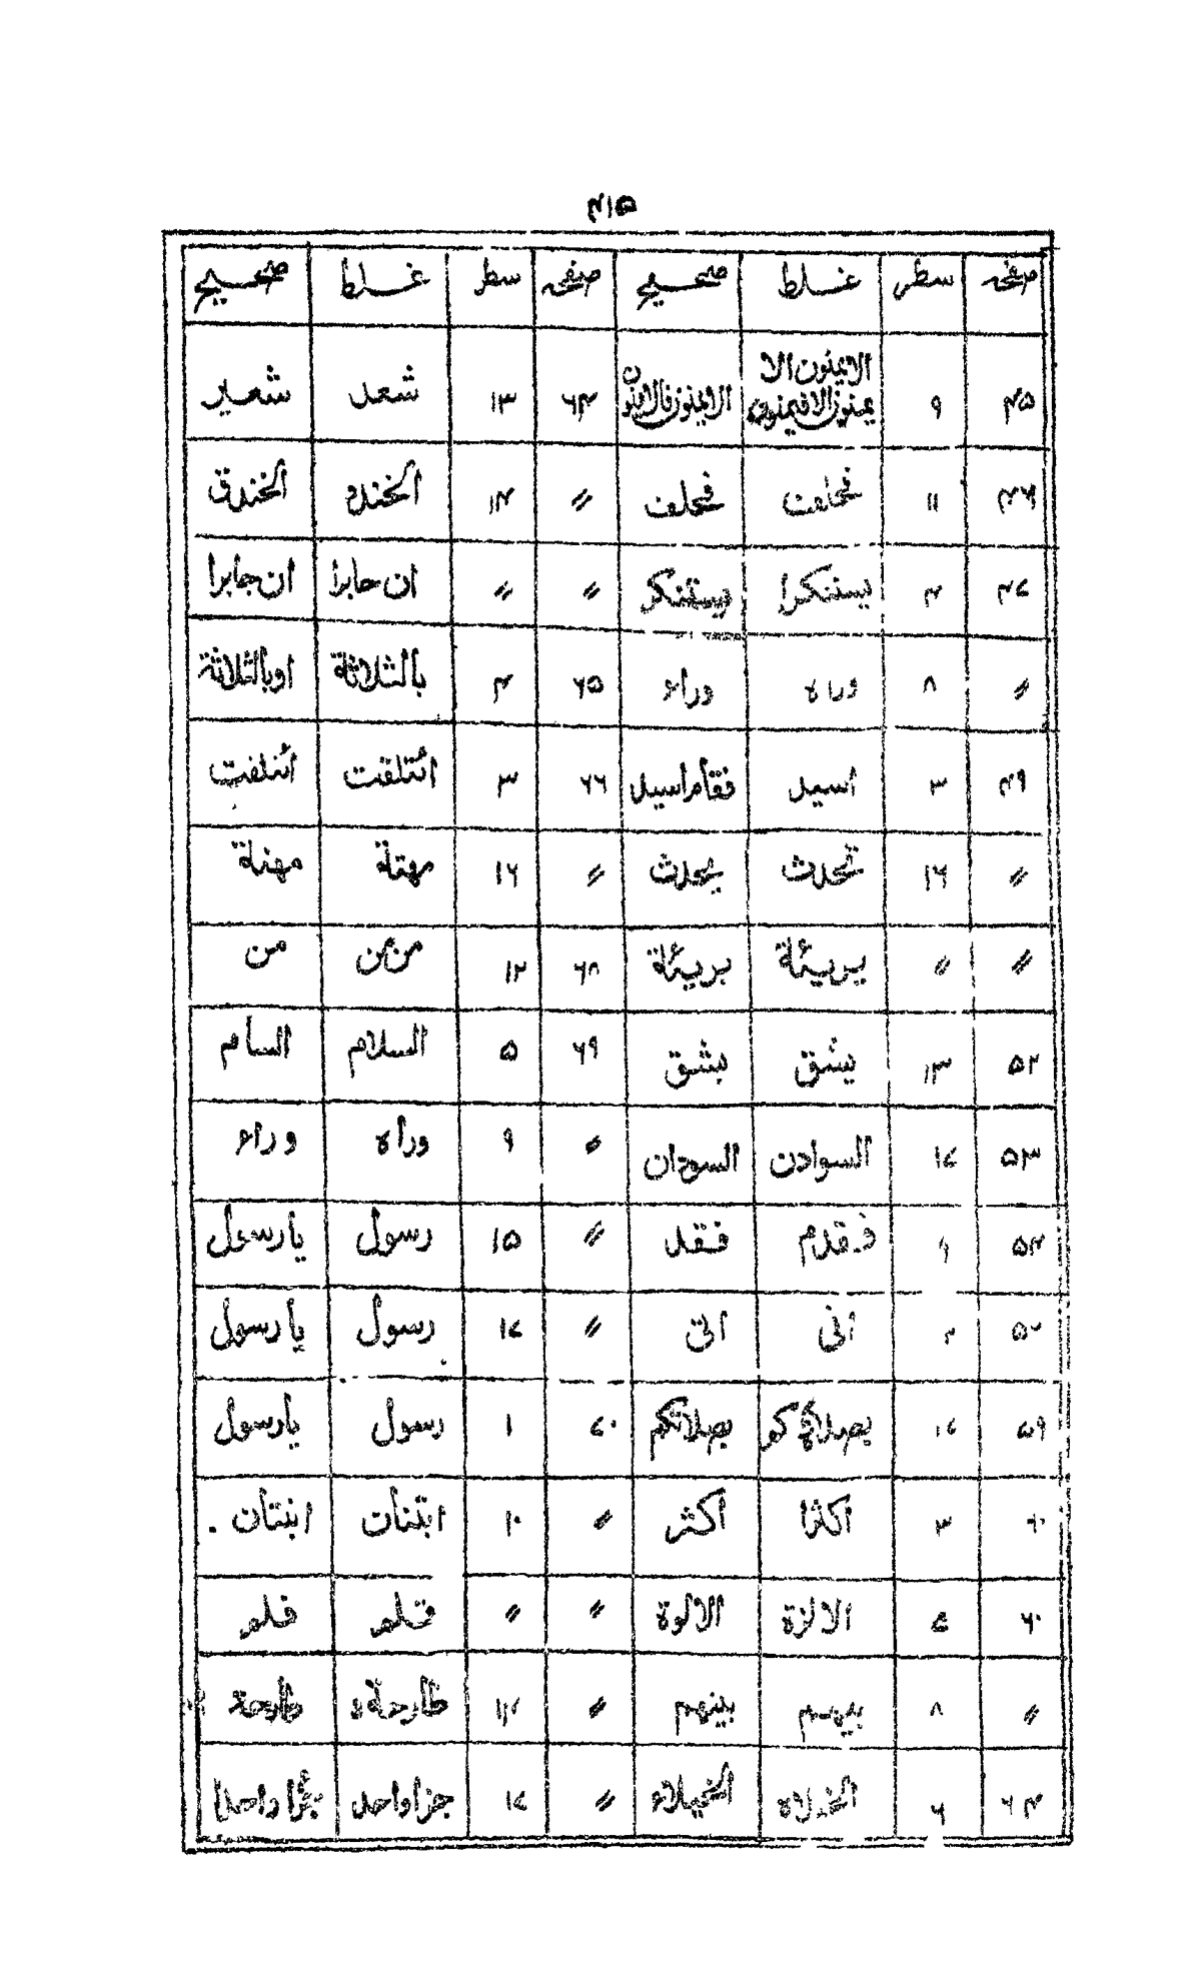 ۴۱۵
صفحہ سطر غلط صحیح صفحہ سطر غلط صحیح
۴۵ ۹ الایمنون الا شعد ۱۳ ۶۴ شعیر
۴۶ ۱۱ فحلفت فحلف 〃 ۱۴ الخندو الخندق
۴۷ ۴ یستنکرا یستنکر 〃 〃 ان حابرا ان جابرا
〃 ۸ وراہ وراء ۶۵ ۴ بالثلاثة اوبالثلاثة
۴۹ ۳ اسید فقام اسید ۶۶ ۳ ائتلقت ائتلفت
〃 ۱۶ تحدث یحدث 〃 ۱۶ مهتة مهنة
〃 〃 یریئة بریئة ۶۸ ۱۲ من من من
۵۲ ۱۳ یشق بشق ۶۹ ۵ السلام السام
۵۳ ۱۷ السوادن السودان 〃 ۹ وراه وراء
۵۴ ۹ فقدم فقد 〃 ۱۵ رسول یا رسول
انی اتی 〃 ۱۷ رسول یا رسول
۵۹ ۱۷ بصلاتکم ۷۰ ۱ رسول یا رسول
۶۰ ۳ اکثرا اکثر 〃 ۱۰ ابتنان ابنتان
۶۰ ۷ الالزة الالوة 〃 〃 قلم فلم
〃 ۸ بیهم بینهم 〃 طارحة طارحة
۶۴ ۶ الخیلاه الخیلاء 〃 ۱۷ جزا واحد